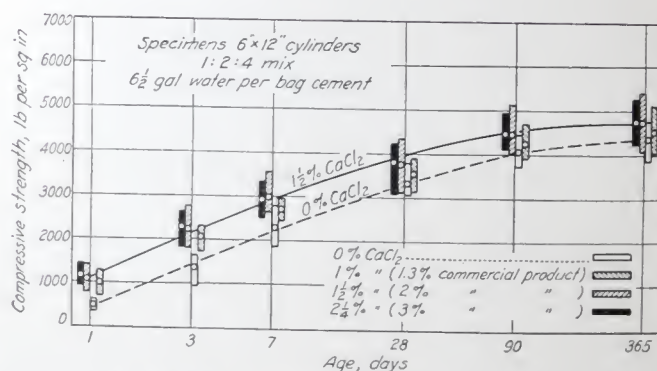 Compressive strength, lb per sq in
7000
6000
5000
4000
3000
2000
1000
0
Specimens 6"×12" cylinders
1:2:4 mix
6½ gal water per bag cement
1½% CaCl2
0% CaCl2
0% CaCl2
1% " (1.3% commercial product)
1½% " (2% " " )
2¼% " (3% " " )
1 3 7 28 90 365
Age, days